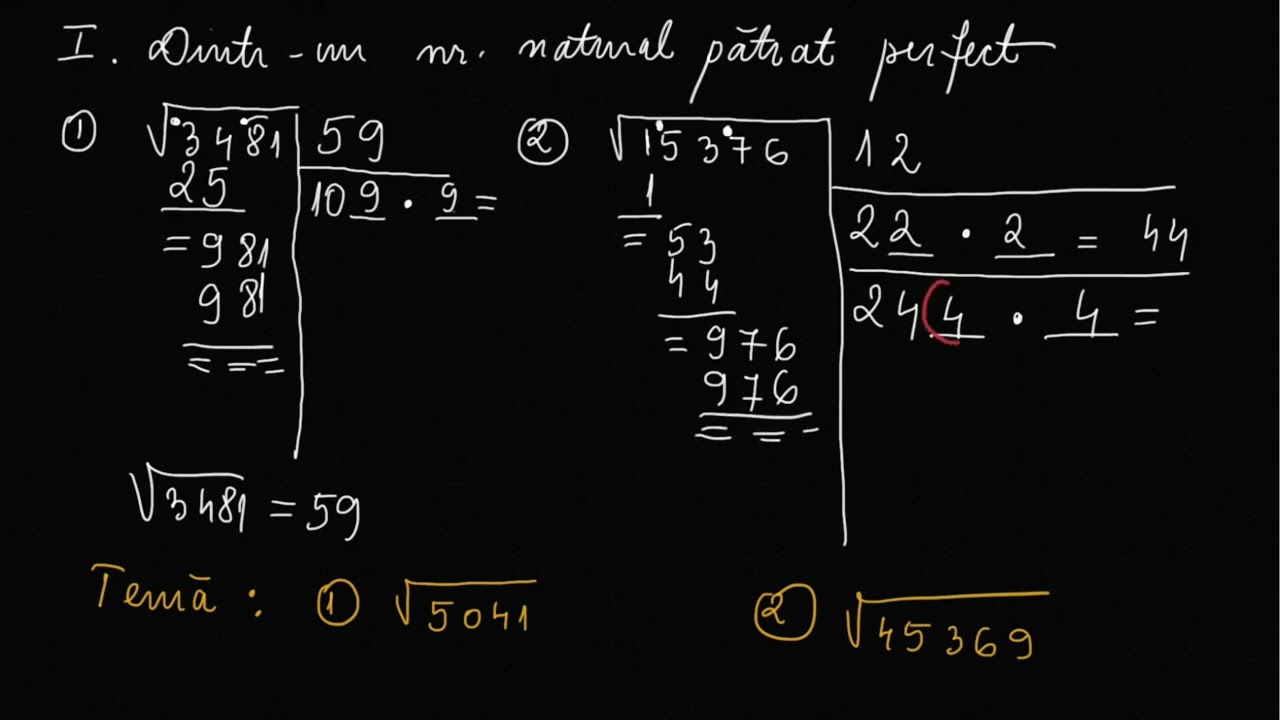 I. Dintr-un nr. natural pătrat perfect
① √3481 59
25 109 · 9 =
= 981
981
= = =
√3481 = 59
② √15376 12
1 22 · 2 = 44
= 53 244 · 4 =
44
= 976
976
= = -
Temă : ① √5041 ② √45369